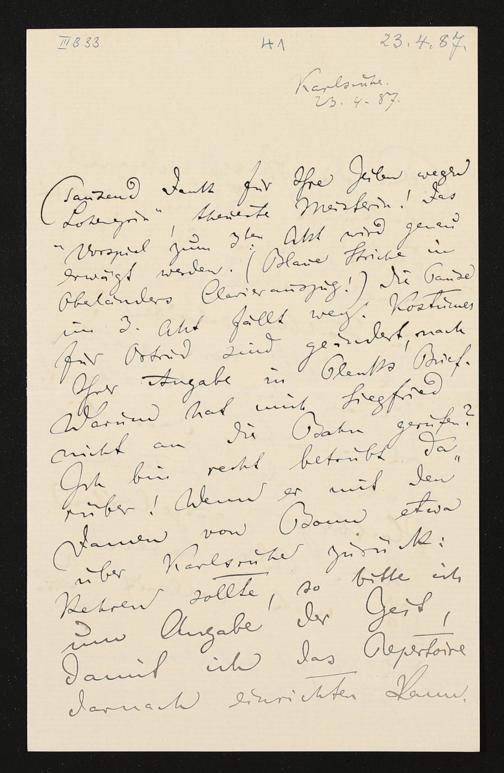 III B 33 41 23.4.87.
Karlsruhe.
23. 4. 87.
Tausend Dank für Ihre Zeilen wegen
Lohengrin", theuerste Meisterin! Das
"Vorspiel zum 3ten Akt wird genau
erwägt werden. (Blaue Striche in
Oberländers Clavierauszug!) Die Pause
im 3. Akt fällt weg. Kostümes
für Ortrud sind geändert, nach
Ihrer Angabe in Planks Brief.
Warum hat mich Siegfried
nicht an die Bahn gerufen?
Ich bin recht betrübt da„
rüber! Wenn er mit den
Damen von Bonn etwa
über Karlsruhe zurück:
kehren sollte, so bitte ich
um Angabe der Zeit,
damit ich das Repertoire
darnach einrichten kann.